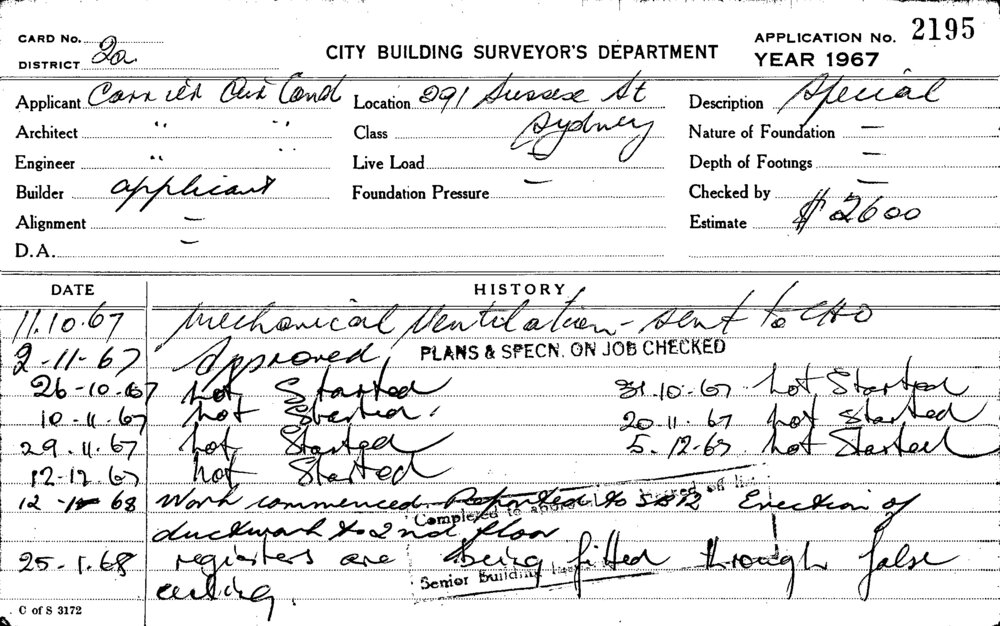 CARD No.
DISTRICT 2a
CITY BUILDING SURVEYOR'S DEPARTMENT
APPLICATION No. 2195
YEAR 1967
Applicant Carrier Air Cond Location 291 Sussex St Description Special
Architect " " Class Sydney Nature of Foundation —
Engineer " " Live Load — Depth of Footings —
Builder applicant Foundation Pressure — Checked by —
Alignment — Estimate $2600
D.A. —
DATE HISTORY
11.10.67 Mechanical Ventilation - sent to CHO
2-11-67 Approved PLANS & SPECN. ON JOB CHECKED
26-10-67 not Started 31.10.67 not Started
10-11-67 not Started. 20.11.67 not Started
29.11.67 not Started 5.12.67 not Started
12-12.67 not Started
12-1-68 Work commenced Reported to Erection of
ductwork to 2nd floor
Completed to
Senior Building
25-1.68 registers are being fitted through false
ceiling.
C of S 3172